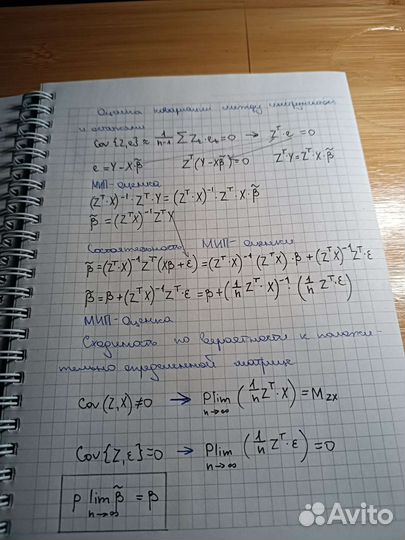 Оценка ковариации между инструментом
и остатками
Cov{Z,e} ≈ 1/(n-1) ∑ Z_t · e_t = 0 → Z^T · e = 0
e = Y - Xβ̃ Z^T(Y - Xβ̃) = 0 Z^T·Y = Z^T·X·β̃
МИП-оценка
(Z^T·X)^-1 · Z^T·Y = (Z^T·X)^-1 · Z^T·X·β̃
β̃ = (Z^T X)^-1 Z^T Y
Состоятельность МИП-оценки
β̃ = (Z^T·X)^-1 Z^T(Xβ + ε) = (Z^T·X)^-1 (Z^T X)·β + (Z^T X)^-1 Z^T·ε
β̃ = β + (Z^T X)^-1 Z^T·ε = β + (1/n Z^T·X)^-1 · (1/n Z^T·ε)
МИП-оценка
Сходимость по вероятности к положи-
тельно определенной матрице
Cov(Z,X) ≠ 0 → Plim n→∞ (1/n Z^T·X) = M_ZX
Cov{Z,ε} = 0 → Plim n→∞ (1/n Z^T·ε) = 0
P lim n→∞ β̃ = β
Avito